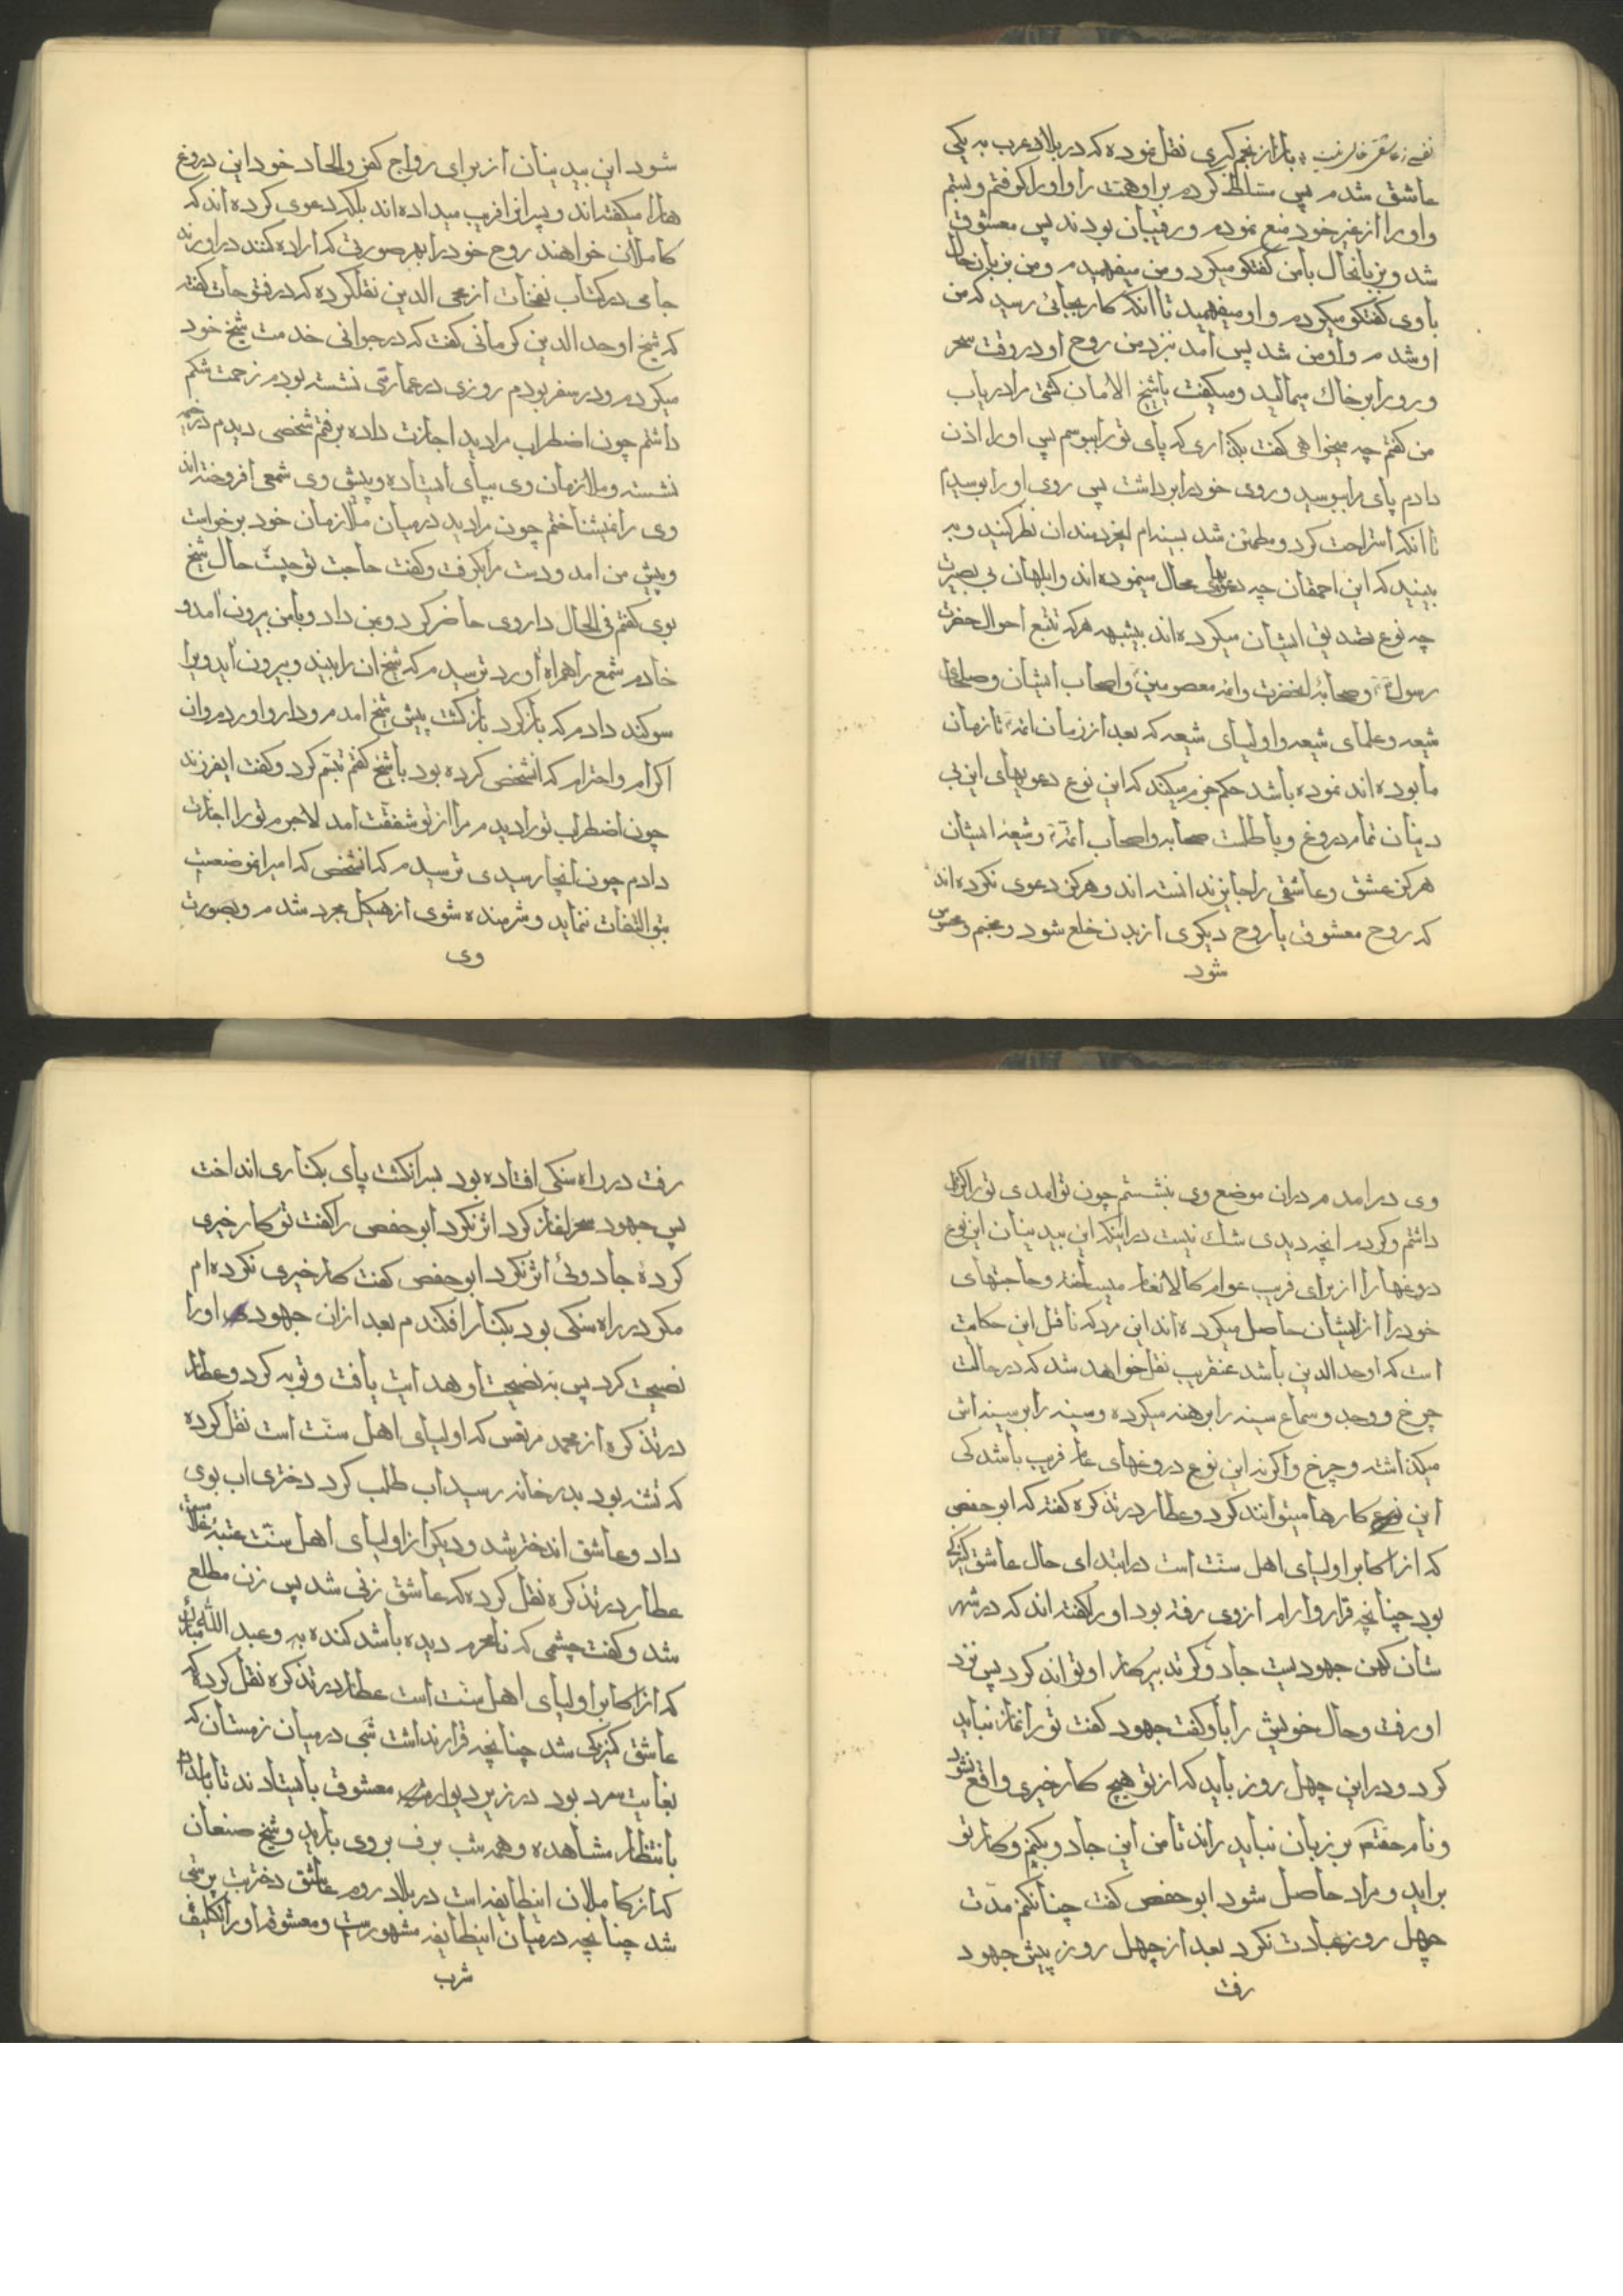 باز از نجم کبری نقل نموده که در بلاد عرب به یکی
عاشق شدم پس مسلط کردم بر او همت را و او را کرفتم و بستم
و او را از غیر خود منع نمودم و رقیبان بودند پس معشوق
شد و بزبانحال با من کفتکو میکرد و من میفهمیدم و من بزبان حال
با وی کفتکو میکردم و او میفهمید تا انکه کار بجائی رسید که من
او شدم و او من شد پس امد نزد من روح او در وقت سحر
و رو را بر خاک میمالید و میکفت یا شیخ الامان کشتی مرا دریاب
من کفتم چه میخواهی کفت بکذاری که پای تو را ببوسم پس او را اذن
دادم پای مرا ببوسید و روی خود را برداشت پس روی او را بوسیدم
تا انکه استراحت کرد و مطمئن شد بسینه‌ام ایخردمندان نظر کنید و به
بینید که این احمقان چه دعویهای محال مینموده‌اند و ابلهان بی بصیرت
چه نوع تصدیق ایشان میکرده‌اند بیشبهه هر که تتبع احوال حضرت
رسول و صحابهٔ انحضرت و ائمه معصومین و اصحاب ایشان و صلحای
شیعه و علمای شیعه و اولیای شیعه که بعد از زمان ائمه تا زمان
ما بوده‌اند نموده باشد حکم جزم میکند که این نوع دعویهای این بی
دینان تمام دروغ و باطلست صحابه و اصحاب ائمه و شیعهٔ ایشان
هرکز عشق و عاشقی را جایز ندانسته‌اند و هرکز دعوی نکرده‌اند
که روح معشوق یا روح دیکری از بدن خلع شود و مجسم و محسوس
شود
شود این بیدینان از برای رواج کفر و الحاد خود این دروغ
هارا میکفته‌اند و پسرانرا فریب میداده‌اند بلکه دعوی کرده‌اند که
کاملان خواهند روح خود را بهر صورتی که اراده کنند در اورند
جامی در کتاب نفحات از محی الدین نقل کرده که در فتوحات کفته
که شیخ اوحد الدین کرمانی کفت که در جوانی خدمت شیخ خود
میکردم و در سفر بودم روزی در عماری نشسته بودم زحمت شکم
داشتم چون اضطراب مرا دید اجازت داده برفتم شخصی دیدم در خیمه
نشسته و ملازمان وی بپای ایستاده و پیش وی شمعی افروخته‌اند
وی را نمیشناختم چون مرا دید در میان ملازمان خود برخواست
و پیش من امد و دست مرا بکرفت و کفت حاجت تو چیست حال شیخ
بوی کفتم فی الحال داروی حاضر کرد و بمن داد و با من بیرون امد و
خادم شمع را همراه اورد ترسیدم که شیخ ان را بیند و بیرون اید ویرا
سوکند دادم که باز کرد باز کشت پیش شیخ امدم و دارو اوردم و ان
اکرام و احترام که انشخص کرده بود با شیخ کفتم تبسم کرد و کفت ایفرزند
چون اضطراب تو را دیدم مرا از تو شفقت امد لاجرم تو را اجازت
دادم چون انجا رسیدی ترسیدم که انشخص که امیر انموضعست
بتو التفات ننماید و شرمنده شوی از هیکل مجرد شدم و بصورت
وی
وی در امدم در ان موضع وی بنشستم چون تو امدی تو را اکرام
داشتم و کردم انچه دیدی شک نیست در اینکه این بیدینان این نوع
دروغها را از برای فریب عوام کالانعام میساخته و حاجتهای
خود را از ایشان حاصل میکرده‌اند این مرد که ناقل این حکایت
است که اوحد الدین باشد عنقریب نقل خواهد شد که در حالت
چرخ و وجد و سماع سینه را برهنه میکرده و سینه را بر سینه‌اش
میکذاشته و چرخ و اکر نه این نوع دروغهای عام فریب باشد کی
این نوع کارها میتوانند کرد و عطار در تذکره کفته که ابو حفص
که از اکابر اولیای اهل سنت است در ابتدای حال عاشق کنیزکی
بود چنانچه قرار و ارام از وی رفته بود او را کفته‌اند که در شهر
ستان کهن جهودیست جادوکر تدبیر کار او تواند کرد پس نزد
او رفت و حال خویش را باو کفت جهود کفت تو را نماز نباید
کرد و در این چهل روز باید که از تو هیچ کار خیری واقع نشود
و نام حقتعم بر زبان نباید راند تا من این جادو بکنم و کار تو
براید و مراد حاصل شود ابو حفص کفت چنانکنم مدت
چهل روز عبادت نکرد بعد از چهل روز پیش جهود
رفت
رفت در راه سنکی افتاده بود بسر انکشت پای بکناری انداخت
پس جهود سحر اغاز کرد اثر نکرد ابو حفص را کفت تو کار خیری
کردهٔ جادوئی اثر نکرد ابو حفص کفت کار خیری نکرده‌ام
مکر در راه سنکی بود بکنار افکندم بعد از ان جهود او را
نصیحت کرد پس به نصیحت او هدایت یافت و توبه کرد و عطار
در تذکره از محمد مرتعش که اولیای اهل سنت است نقل کرده
که تشنه بود بدر خانه رسید اب طلب کرد دختری اب بوی
داد و عاشق اندختر شد و دیکر از اولیای اهل سنت عتبهٔ غلام
عطار در تذکره نقل کرده که عاشق زنی شد پس زن مطلع
شد و کفت چشمی که نامحرم دیده باشد کنده به و عبد الله مبارک
که از اکابر اولیای اهل سنت است عطار در تذکره نقل کرده که
عاشق کنیزکی شد چنانچه قرار نداشت شبی در میان زمستان که
بغایت سرد بود در زیر دیوار معشوق بایستادند تا بامداد
بانتظار مشاهده و همه شب برف بر وی بارید و شیخ صنعان
که از کاملان اینطایفه است در بلاد روم عاشق دختر بت پرستی
شد چنانچه در میان اینطایفه مشهورست و معشوقه او را تکلیف
شرب